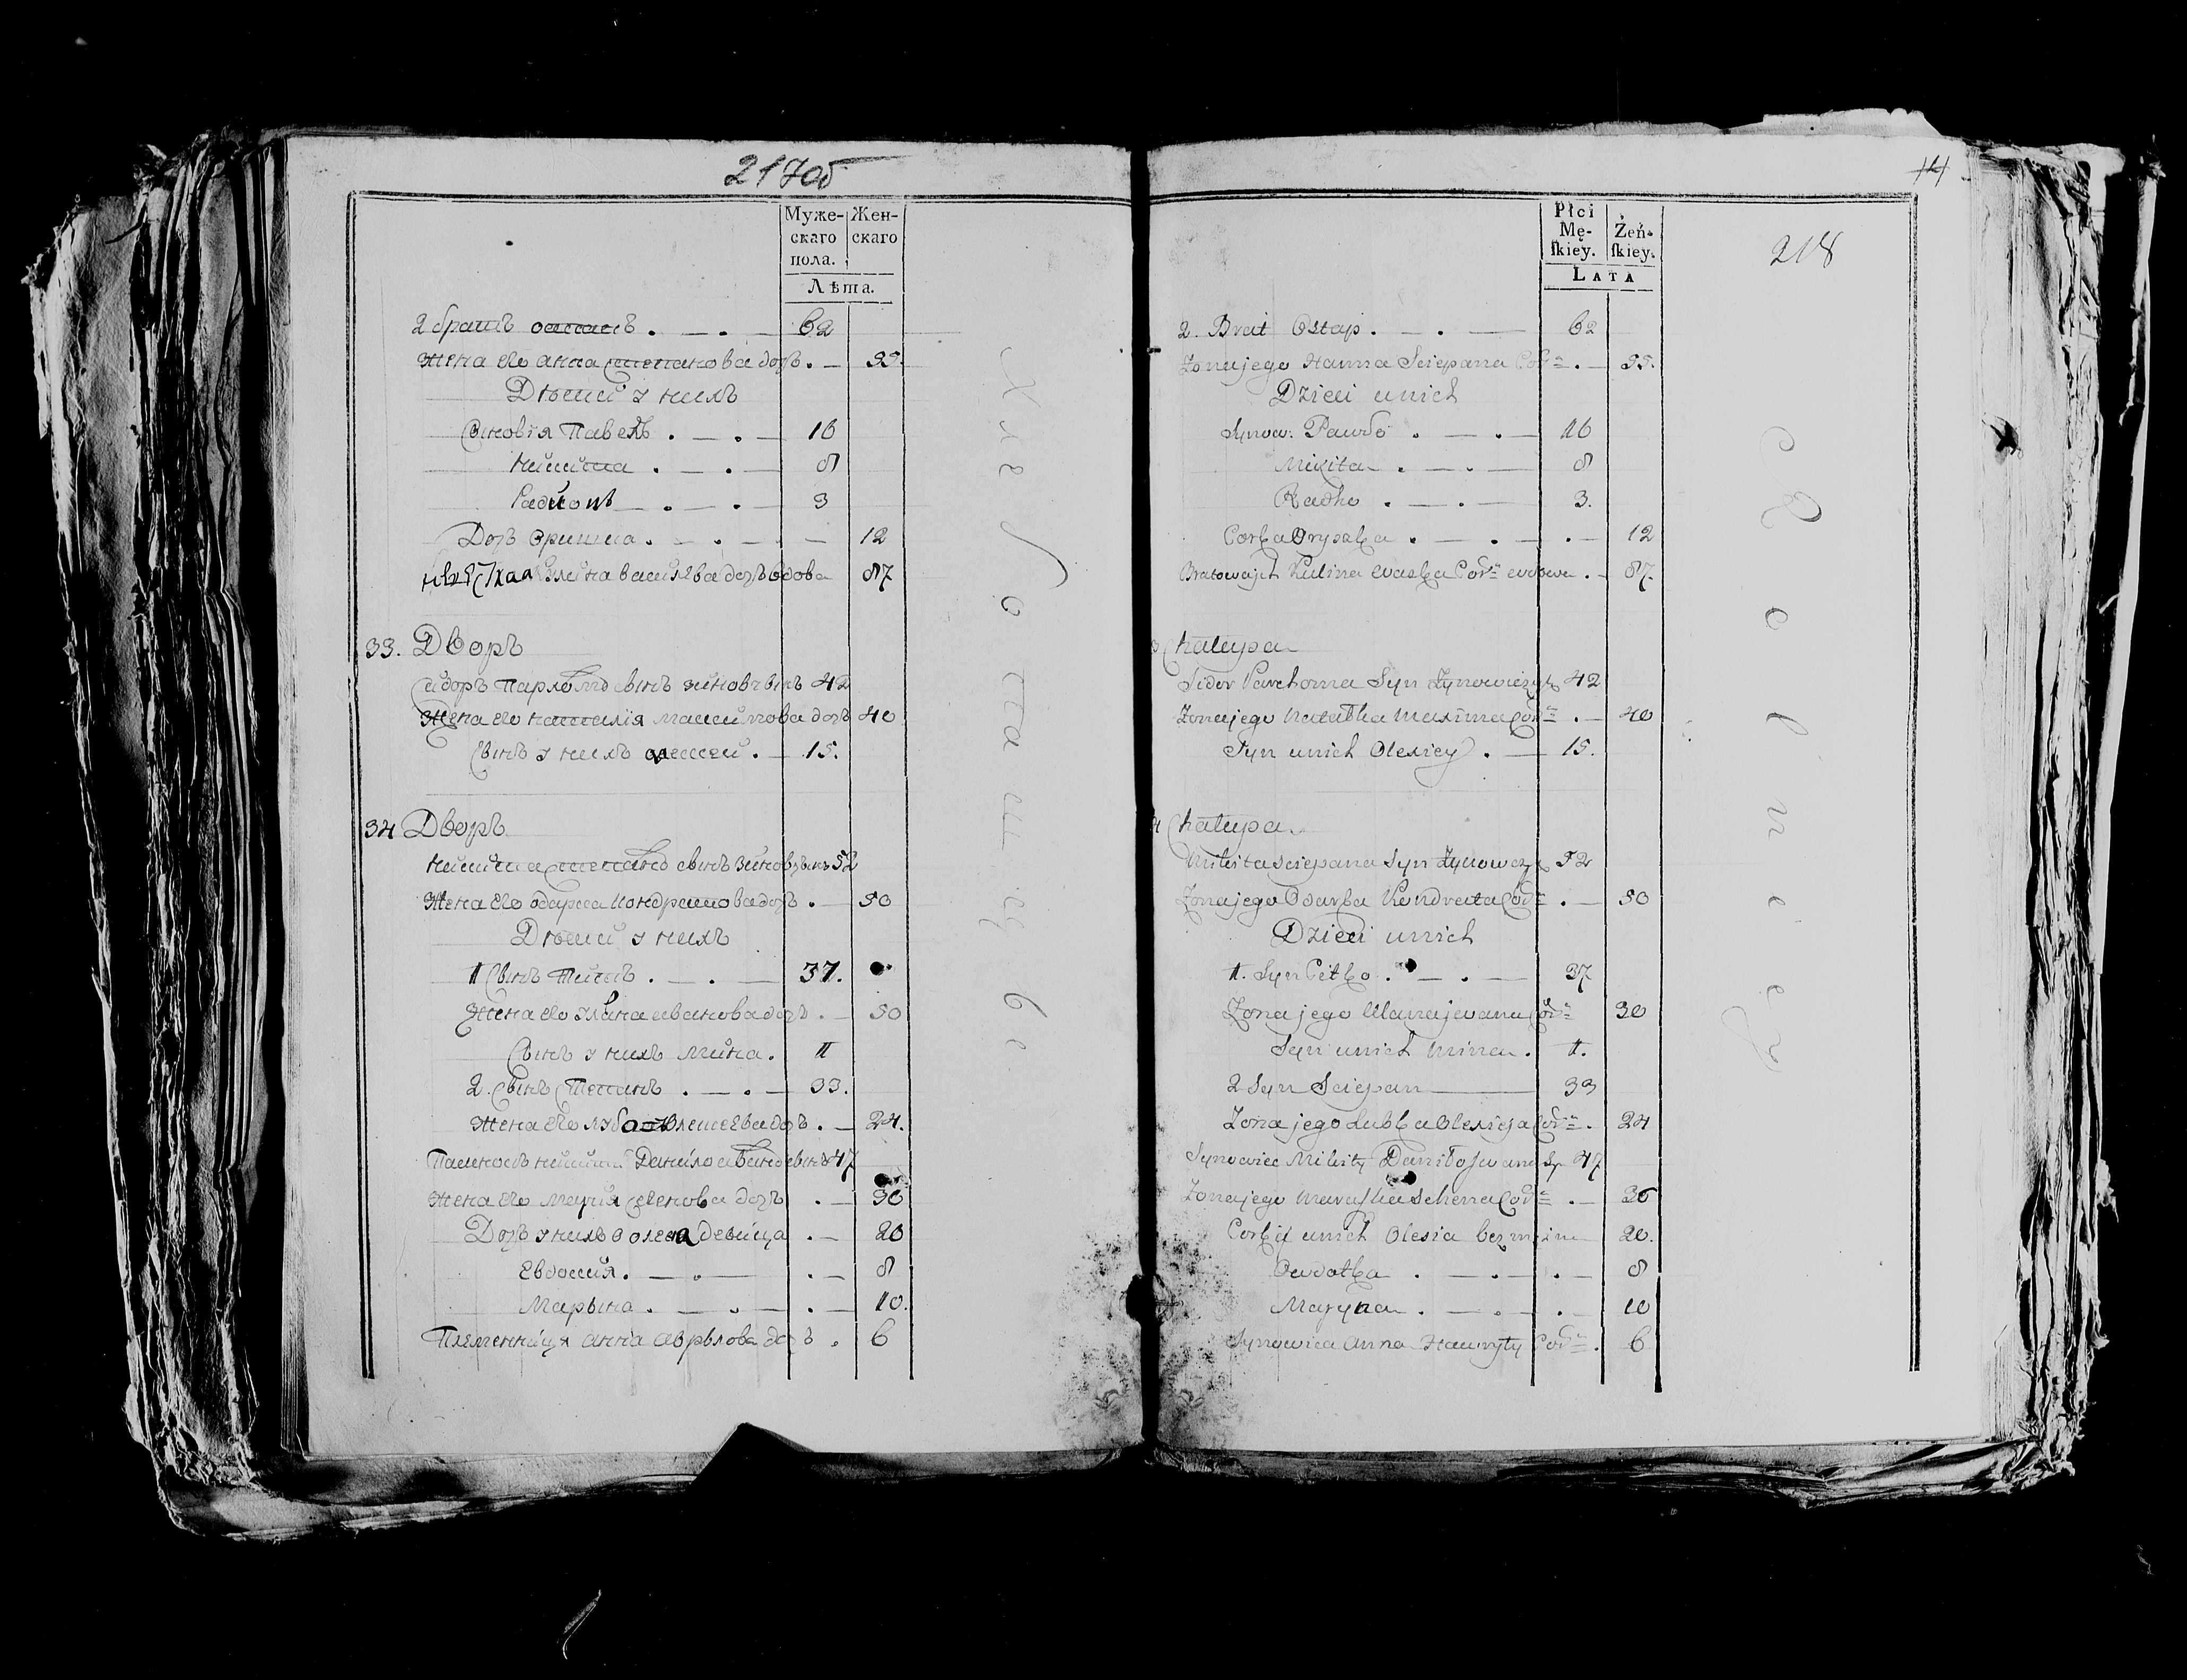 217об
Муже-
скаго
пола.
Жен-
скаго
Лѣта.
2 братъ остапъ . — . — 62
Жена его анна степанова дочъ . — 55.
Дѣти у нихъ
Синовѣя Павелъ . — . — 16
Никита . — . — 8
Радионъ — . — . — 3
Дочъ Оришка . — . — — 12
Улина василева дочъ вдова 87
33. Дворъ
Сидоръ Пархомовъ сынъ зиновичъ 42
Жена его наталія максимова дочъ 40
Сынъ у нихъ алексей . — 15.
34 Дворъ
Никита степановъ сынъ 52
Жена его одарка кондратова дочъ . — 50
Дѣти у нихъ
1 Сынъ Титъ . — . — 37.
Жена его уляна иванова дочъ . — 30
Сынъ у нихъ мина . 1
2. Сынъ Степанъ . — . — 33.
Жена его люба алексеева дочъ . — 24.
Данило ивановъ сынъ 47
Жена его мария семенова дочъ . — 36
Дочъ у нихъ олена девица . — 20
Евдокия . — . — . — 8
Марына . — . — . — 10.
Племенница анна аврылова дочъ . 6
Хлебопашцы
218
Płci
Mę-
ſkiey.
Żeń-
ſkiey.
LATA
2. Brat Ostap . — . — 62
Zona jego Hanna Sciepana Cor. — 55.
Dzieci u nich
Synow. Pawło . — . — 16
Mikita . — . — 8
Radko . — . — 3.
Corka Oryszka . — . — . — 12
Bratowa ich Kulina Waska Cor. wdowa . — 87.
Chałupa
Sidor Parchoma Syn Zynowiczyk 42
Zona jego Natałka Maxima Cor. . — 40
Syn u nich Olexiey . — 15.
Chałupa
Mikita Sciepana Syn Zynowczyk 52
Zona jego Odarka Kondrata Cor. . — 50
Dzieci u nich
1. Syn Citko . — . — 37
Zona jego Ulana Jwana Cor. 30
Syn u nich Mina . 1.
2 Syn Sciepan — 33
Zona jego Lubka Olexieja Cor. . 24
Synowiec Mikity Daniło Jwana Sy. 47
Zona jego Maryśka Semena Cor. . — 36
Corki u nich Olesia bez męża 20.
Owdotka . — . — . — 8
Maryna . — . — . — 10
Synowica Anna Hawryły Cor. . 6